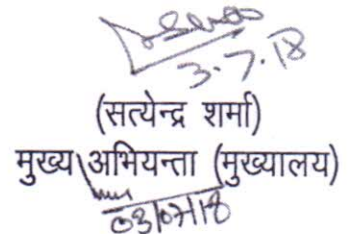 3.7.18
(सत्येन्द्र शर्मा)
मुख्य अभियन्ता (मुख्यालय)
03/07/18